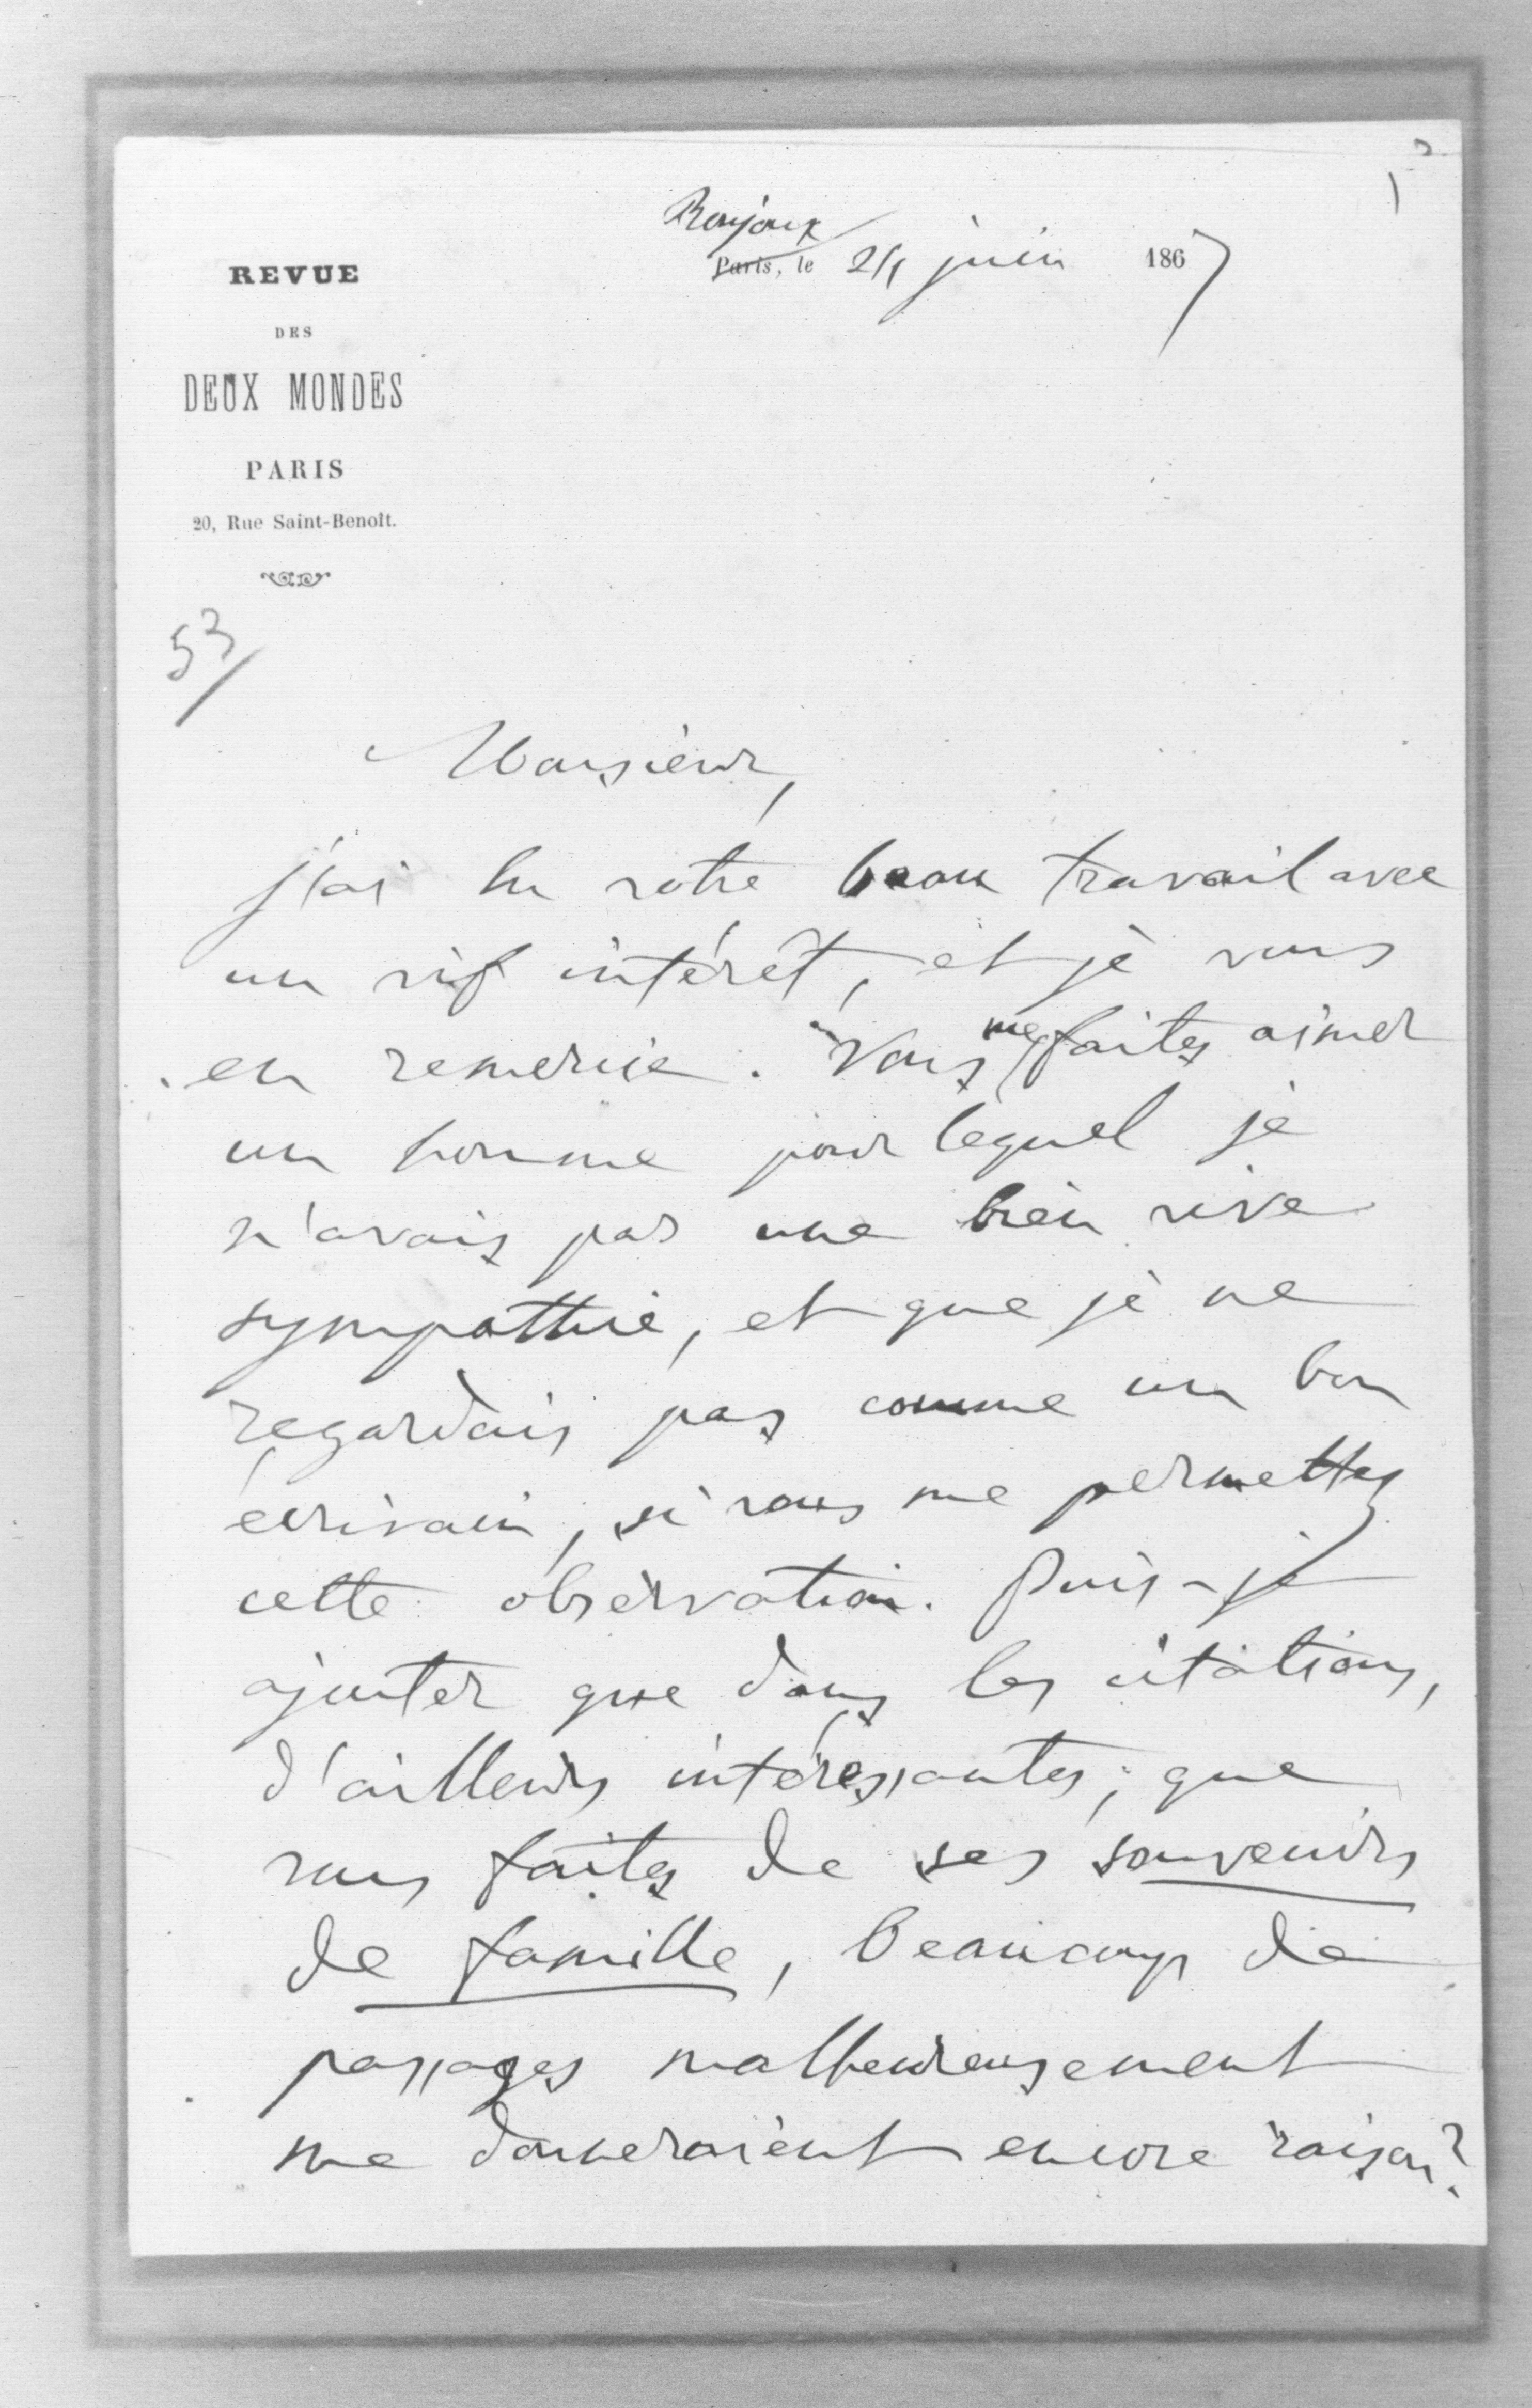 Ronjoux
Paris, le 24 juin 1867
REVUE
DES
DEUX MONDES
PARIS
20, Rue Saint-Benoît.
53
Monsieur,
j'ai lu votre beau travail avec
un vif intérêt, et je vous
en remercie. Vous me faites aimer
un homme pour lequel je
n'avais pas une bien vive
sympathie, et que je ne
regardais pas comme un bon
écrivain, si vous me permettez
cette observation. Puis-je
ajouter que dans les citations,
d'ailleurs intéressantes, que
vous faites de ses souvenirs
de famille, beaucoup de
passages malheureusement
me donneraient encore raison?